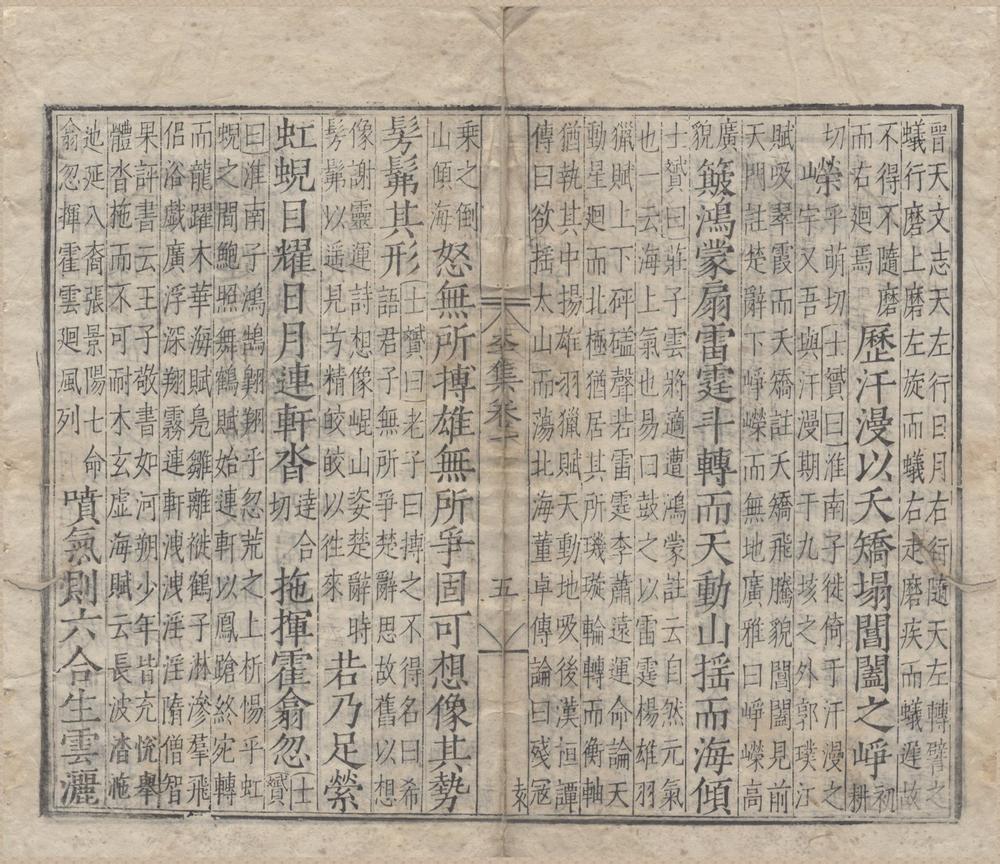 晋天文志天左行日月右行隨天左轉譬之
蟻行磨上磨左旋而蟻右走磨疾而蟻遲故
不得不隨磨
而右廻焉
歷汗漫以夭矯塌閶闔之崢初耕
切嶸乎萌切士贇曰淮南子徙倚于汗漫之
宇又吾與汗漫期于九垓之外郭璞江
賦吸翠霞而夭矯註夭矯飛騰貌閶闔見前
天門註楚辭下崢嶸而無地廣雅曰崢嶸高
廣貌
簸鴻蒙扇雷霆斗轉而天動山揺而海傾
士贇曰莊子雲將適遭鴻蒙註云自然元氣
也一云海上氣也易曰鼓之以雷霆楊雄羽
獵賦上下砰磕聲若雷霆李蕭遠運命論天
動星廻而北極猶居其所璣璇輪轉而衡軸
猶執其中揚雄羽獵賦天動地吸後漢桓譚
傳曰欲揺太山而蕩北海董卓傳論曰殘冦
李集卷一
五
乘之倒
山傾海
怒無所搏雄無所爭固可想像其勢
髣髴其形
士贇曰老子曰搏之不得名曰希
語君子無所爭楚辭思故舊以想
像謝靈運詩想像崐山姿楚辭時
髣髴以遥見芳精皎皎以徃來
若乃足縈
虹蜺目耀日月連軒沓達合切拖揮霍翕忽士贇
曰淮南子鴻鵠翺翔乎忽荒之上析惕乎虹
蜺之間鮑照舞鶴賦始連軒以鳳蹌終宛轉
而龍躍木華海賦鳬雛離褷鶴子淋滲羣飛
侣浴戲廣浮深翔霧連軒洩洩淫淫隋僧智
果評書云王子敬書如河朔少年皆充恱舉
體沓拖而不可耐木玄虛海賦云長波涾㴰
迆延八裔張景陽七命
翕忽揮霍雲廻風列
噴氣則六合生雲灑